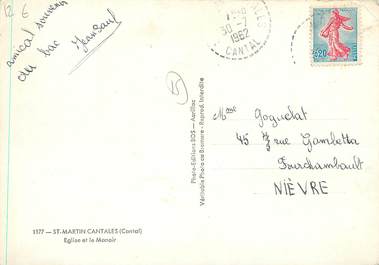 12 6
amical souvenir
du bac
Jean Saul
30-7
1962
CANTAL
0,20
15
Mme Goguelat
45 rue Gambetta
Fourchambault
NIÈVRE
Photo-Editions BOS - Aurillac
Véritable Photo au Bromure - Reprod. Interdite
1177 - ST-MARTIN CANTALES (Cantal)
Eglise et le Manoir